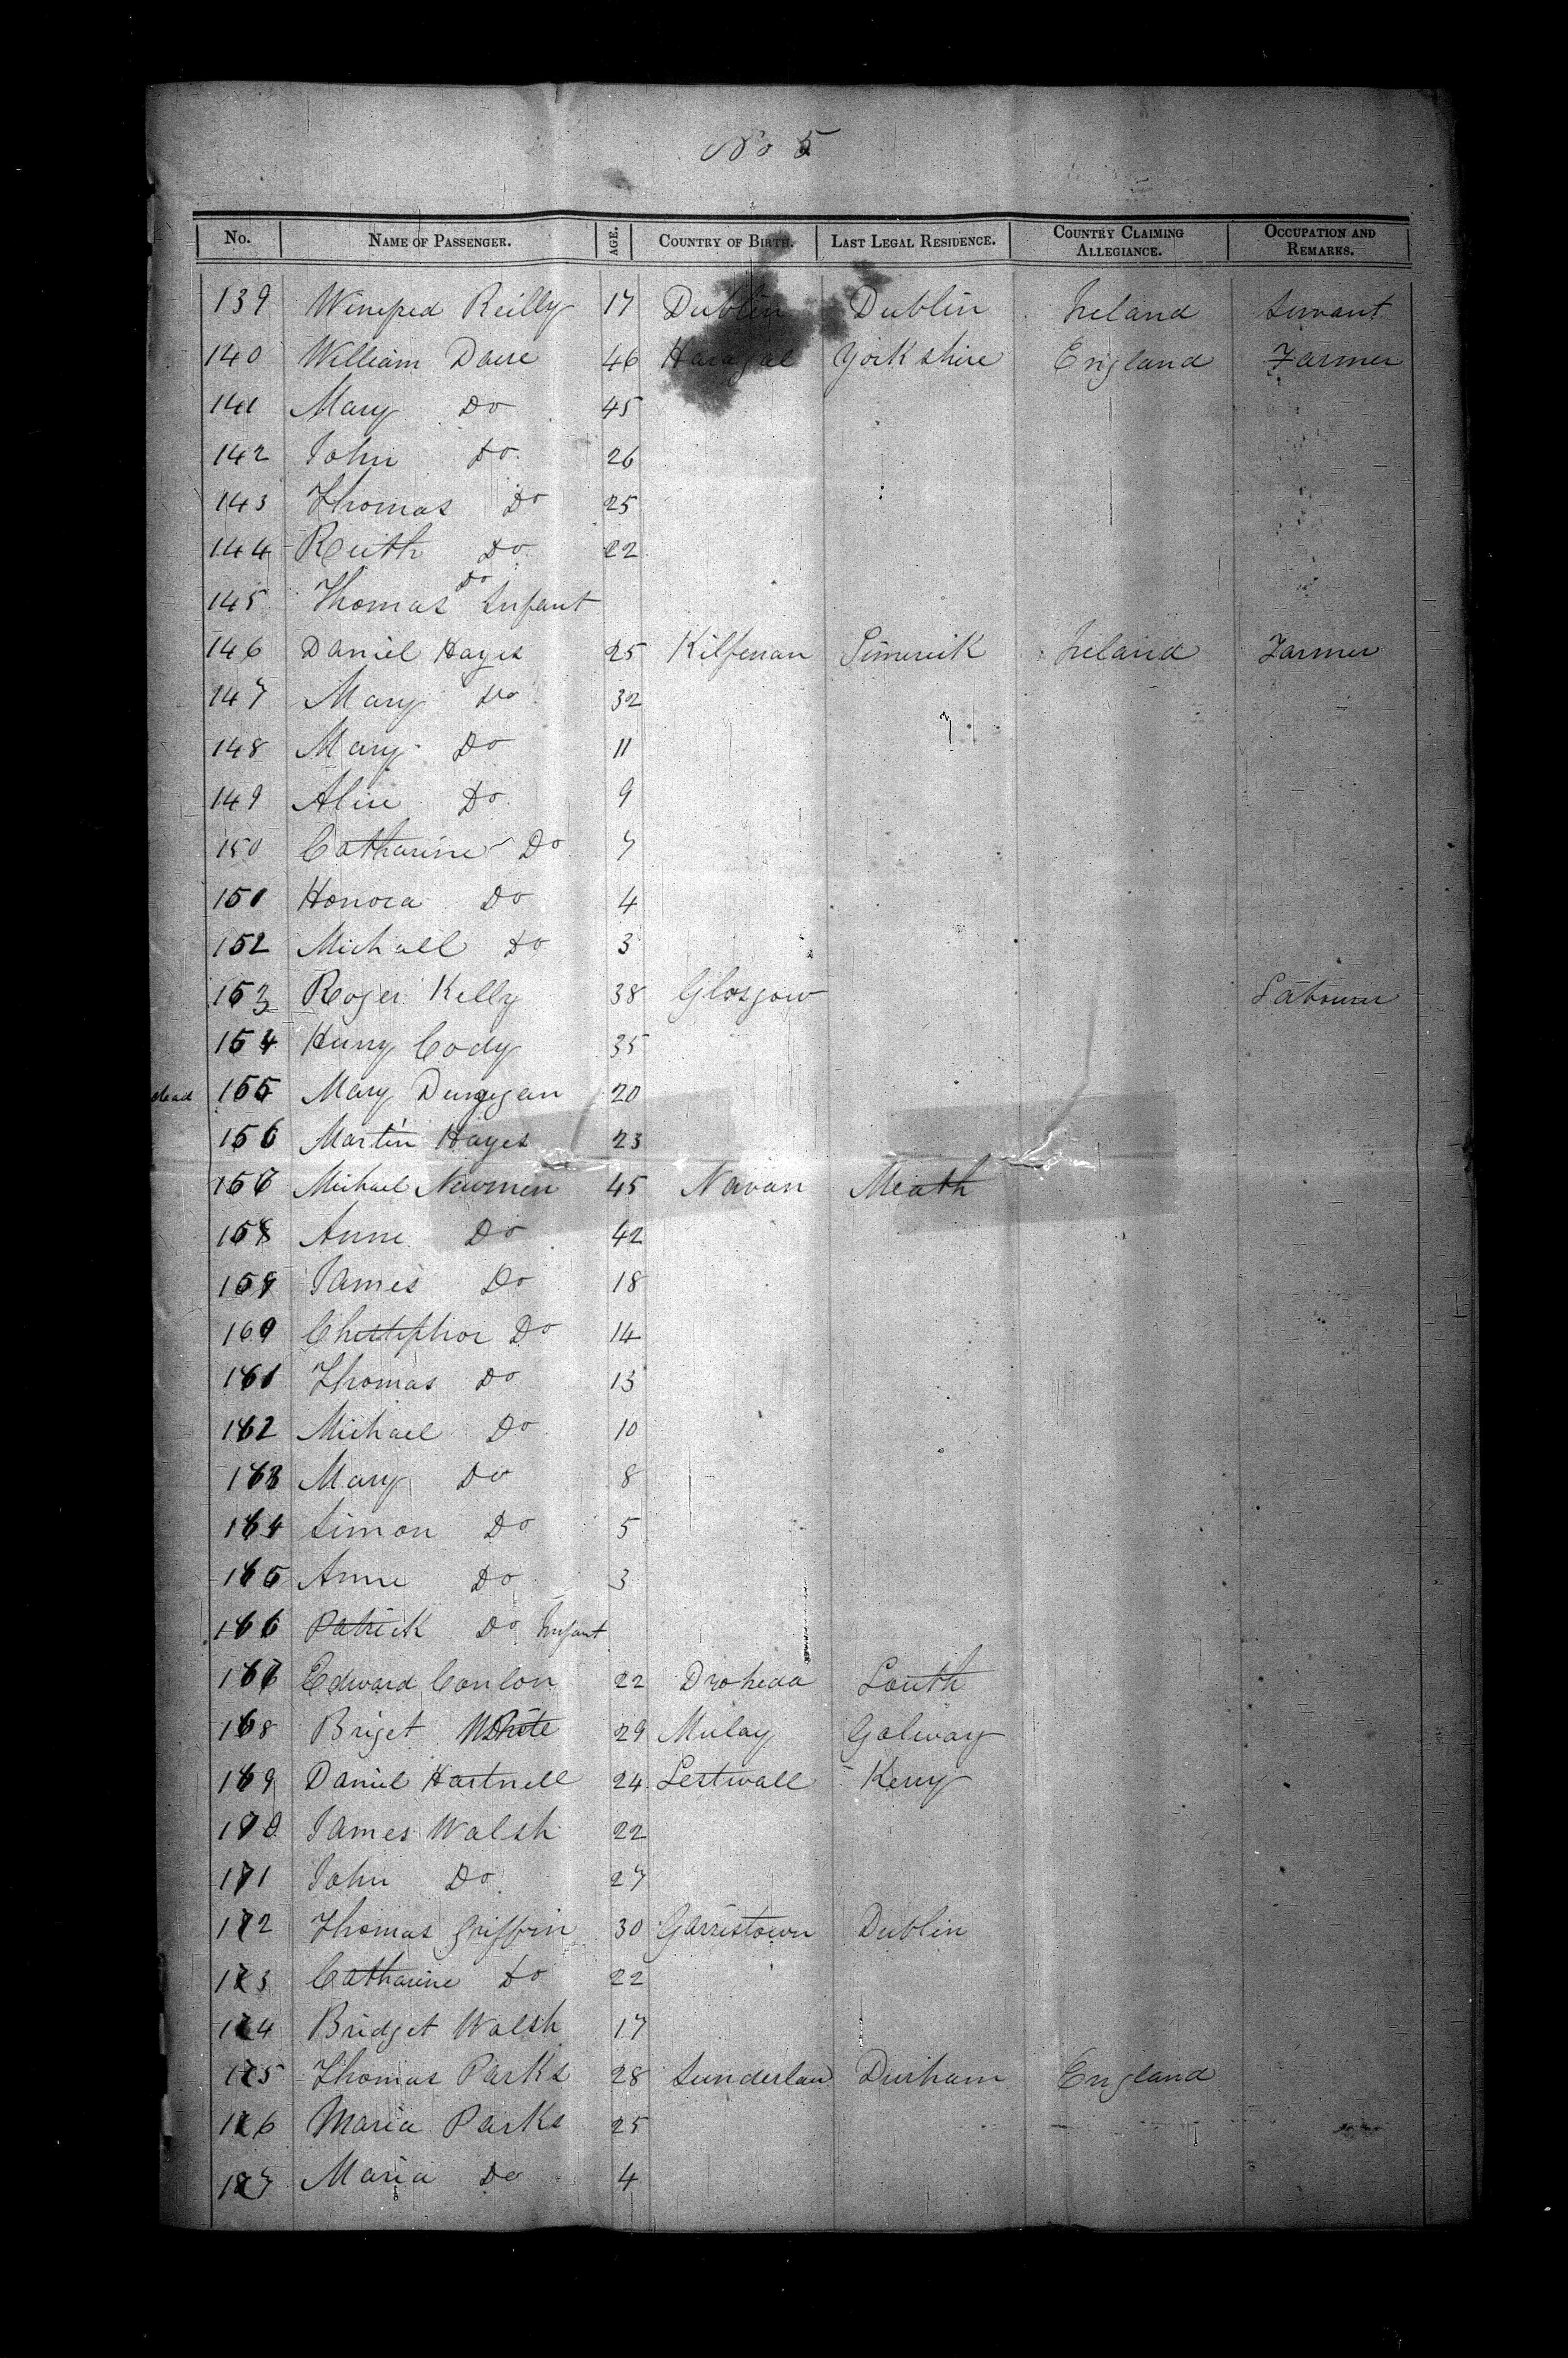 No 5
No. NAME OF PASSENGER. AGE. COUNTRY OF BIRTH. LAST LEGAL RESIDENCE. COUNTRY CLAIMING ALLEGIANCE. OCCUPATION AND REMARKS.
139 Winifred Reilly 17 Dublin Dublin Ireland Servant
140 William 46 Yorkshire England Farmer
141 Mary Do 45
142 John Do 26
143 Thomas Do 25
144 Ruth Do 22
145 Thomas Do Infant
146 Daniel Hayes 25 Kilfenan Limerick Ireland Farmer
147 Mary Do 32
148 Mary Do 11
149 Alice Do 9
150 Catharine Do 7
151 Honora Do 4
152 Michall Do 3
153 Roger Kelly 38 Glosgow Labourer
154 Henry Cody 35
dead 155 Mary Dungegan 20
156 Martin Hayes 23
157 Michael Newmen 45 Navan Meath
158 Anne Do 42
159 James Do 18
160 Christiphor Do 14
161 Thomas Do 13
162 Michael Do 10
163 Mary Do 8
164 Simon Do 5
165 Anne Do 3
166 Patrick Do Infant
167 Edward Conlon 22 Droheda Louth
168 Briget White 29 Mulay Galway
169 Daniel Hartnell 24 Lestwall Kerry
170 James Walsh 22
171 John Do 27
172 Thomas Griffin 30 Garristown Dublin
173 Catharine Do 22
174 Bridget Walsh 17
175 Thomas Parks 28 Sunderlan Durham England
176 Maria Parks 25
177 Maria Do 4